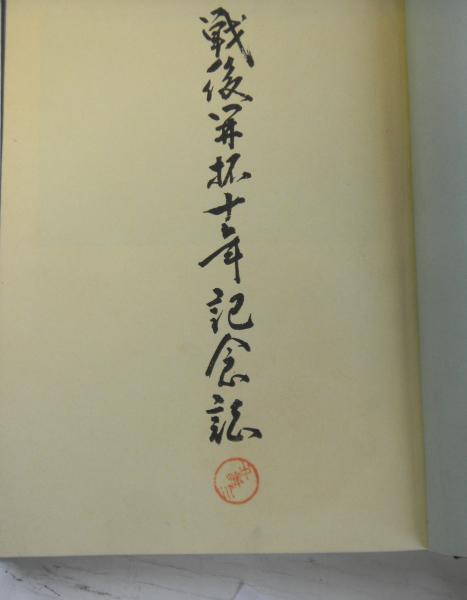 戦後開拓十年記念誌